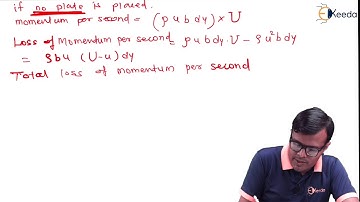 if no plate is placed.
momentum per second = (ρ u b dy) × U
Loss of Momentum per second = ρ u b dy. U - ρ u² b dy
= ρ b u (U-u) dy
Total loss of momentum per second
Ekeeda